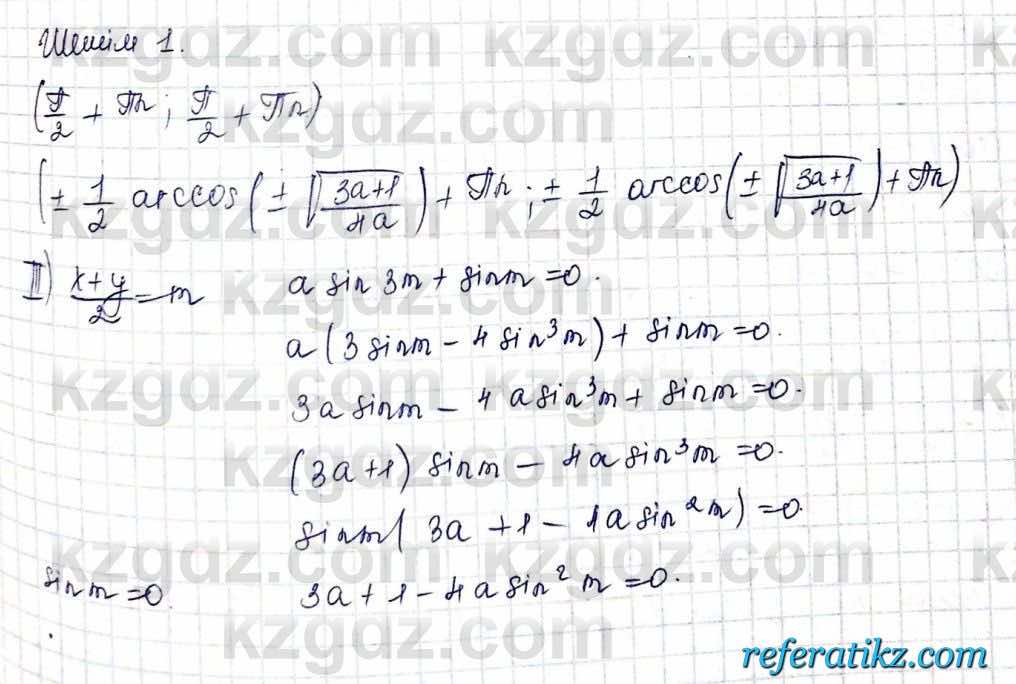 Шешім 1.
(π/2 + πn; π/2 + πn)
(± 1/2 arccos(± √(3a+1)/4a) + πn; ± 1/2 arccos(± √(3a+1)/4a) + πn)
II) (x+y)/2 = m   a sin 3m + sin m = 0.
a(3 sin m - 4 sin³m) + sin m = 0.
3a sin m - 4a sin³m + sin m = 0.
(3a+1) sin m - 4a sin³m = 0.
sin m( 3a + 1 - 4a sin²m) = 0.
sin m = 0.   3a + 1 - 4a sin²m = 0.
kzgdz.com
referatikz.com